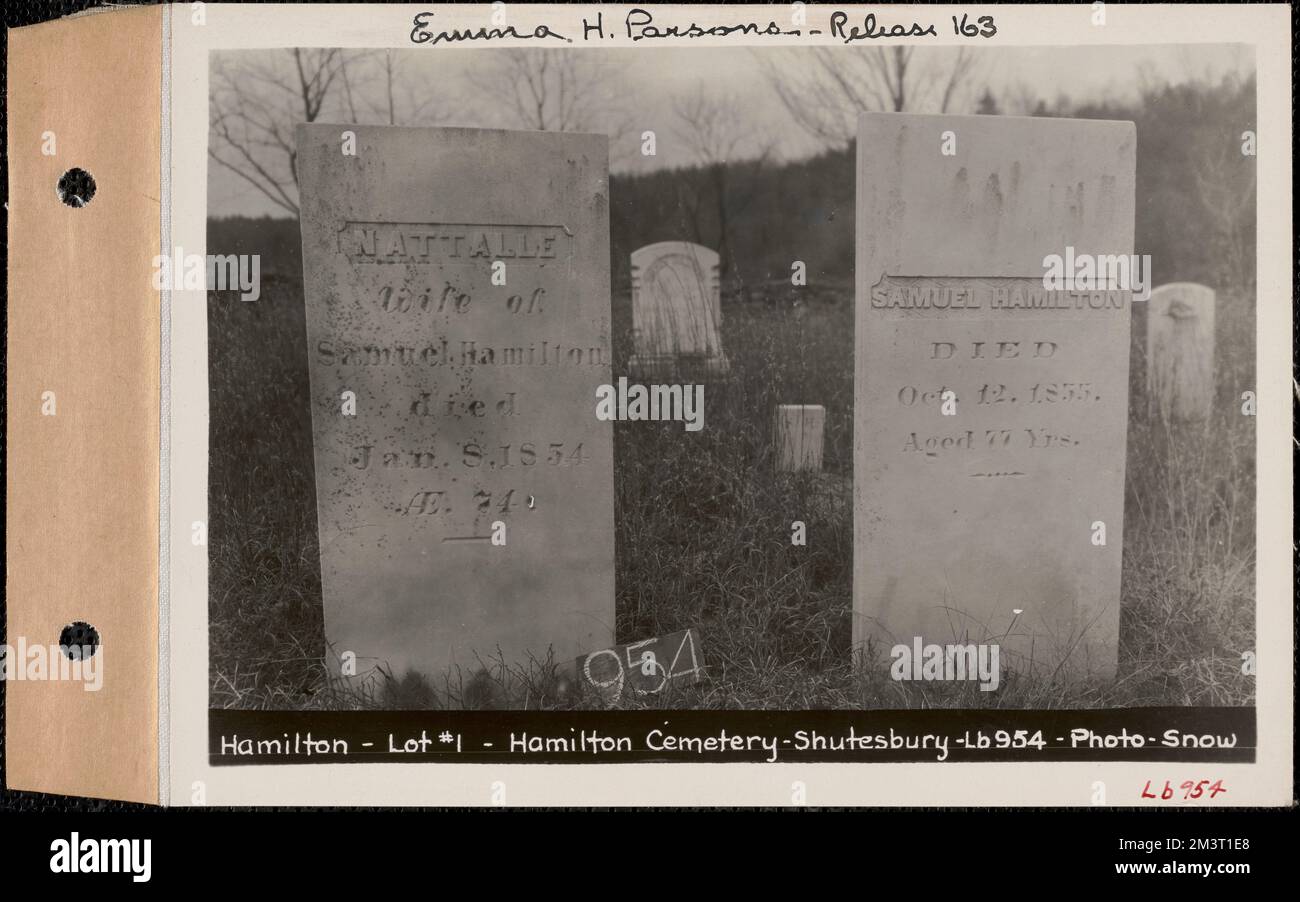 Emma H. Parsons - Release 163
NATTALLE
Wife of
Samuel Hamilton
died
Jan. 8, 1854
Æ. 74
SAMUEL HAMILTON
DIED
Oct. 12. 1855.
Aged 77 Yrs.
954
Hamilton - Lot #1 - Hamilton Cemetery - Shutesbury - Lb954 - Photo - Snow
Lb954
alamy
alamy
alamy
alamy
alamy
alamy
Image ID: 2M3T1E8
www.alamy.com